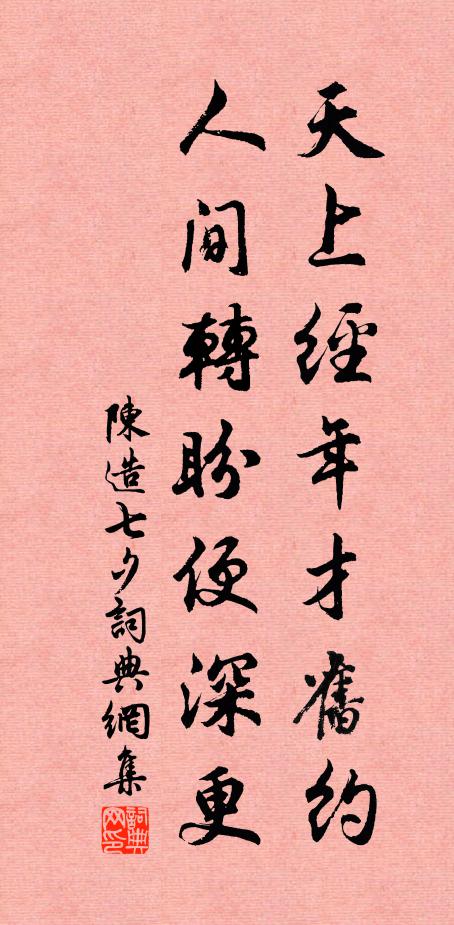 天上經年才舊約
人間轉盼便深更
陳造七夕詞典網集
詞典網印